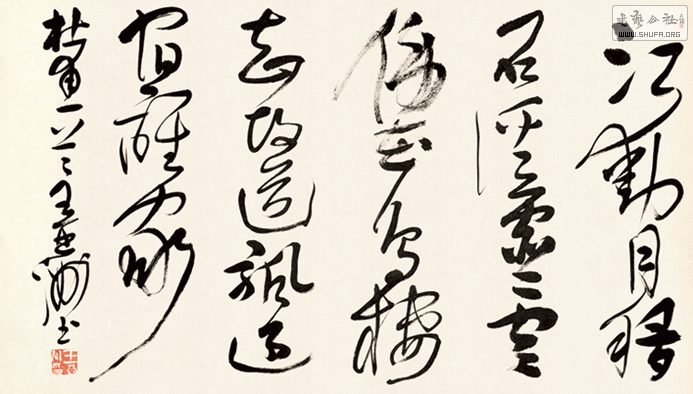 江動月移
石溪虛雲
傍花鳥棲
知故道帆過
宿誰家
杜甫一首王亞洲书
書藝公社
WWW.SHUFA.ORG